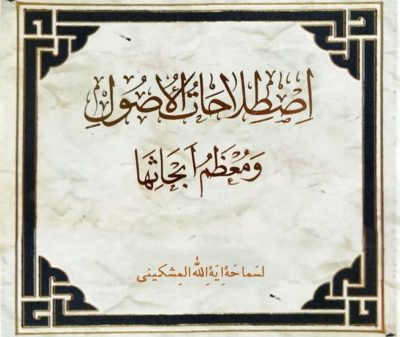 اِصْطِلَاحَاتُ الْأُصُولِ
وَمُعْظَمُ أَبْحَاثِهَا
لسَماحَةِ ايَةِ اللهِ المِشكينى